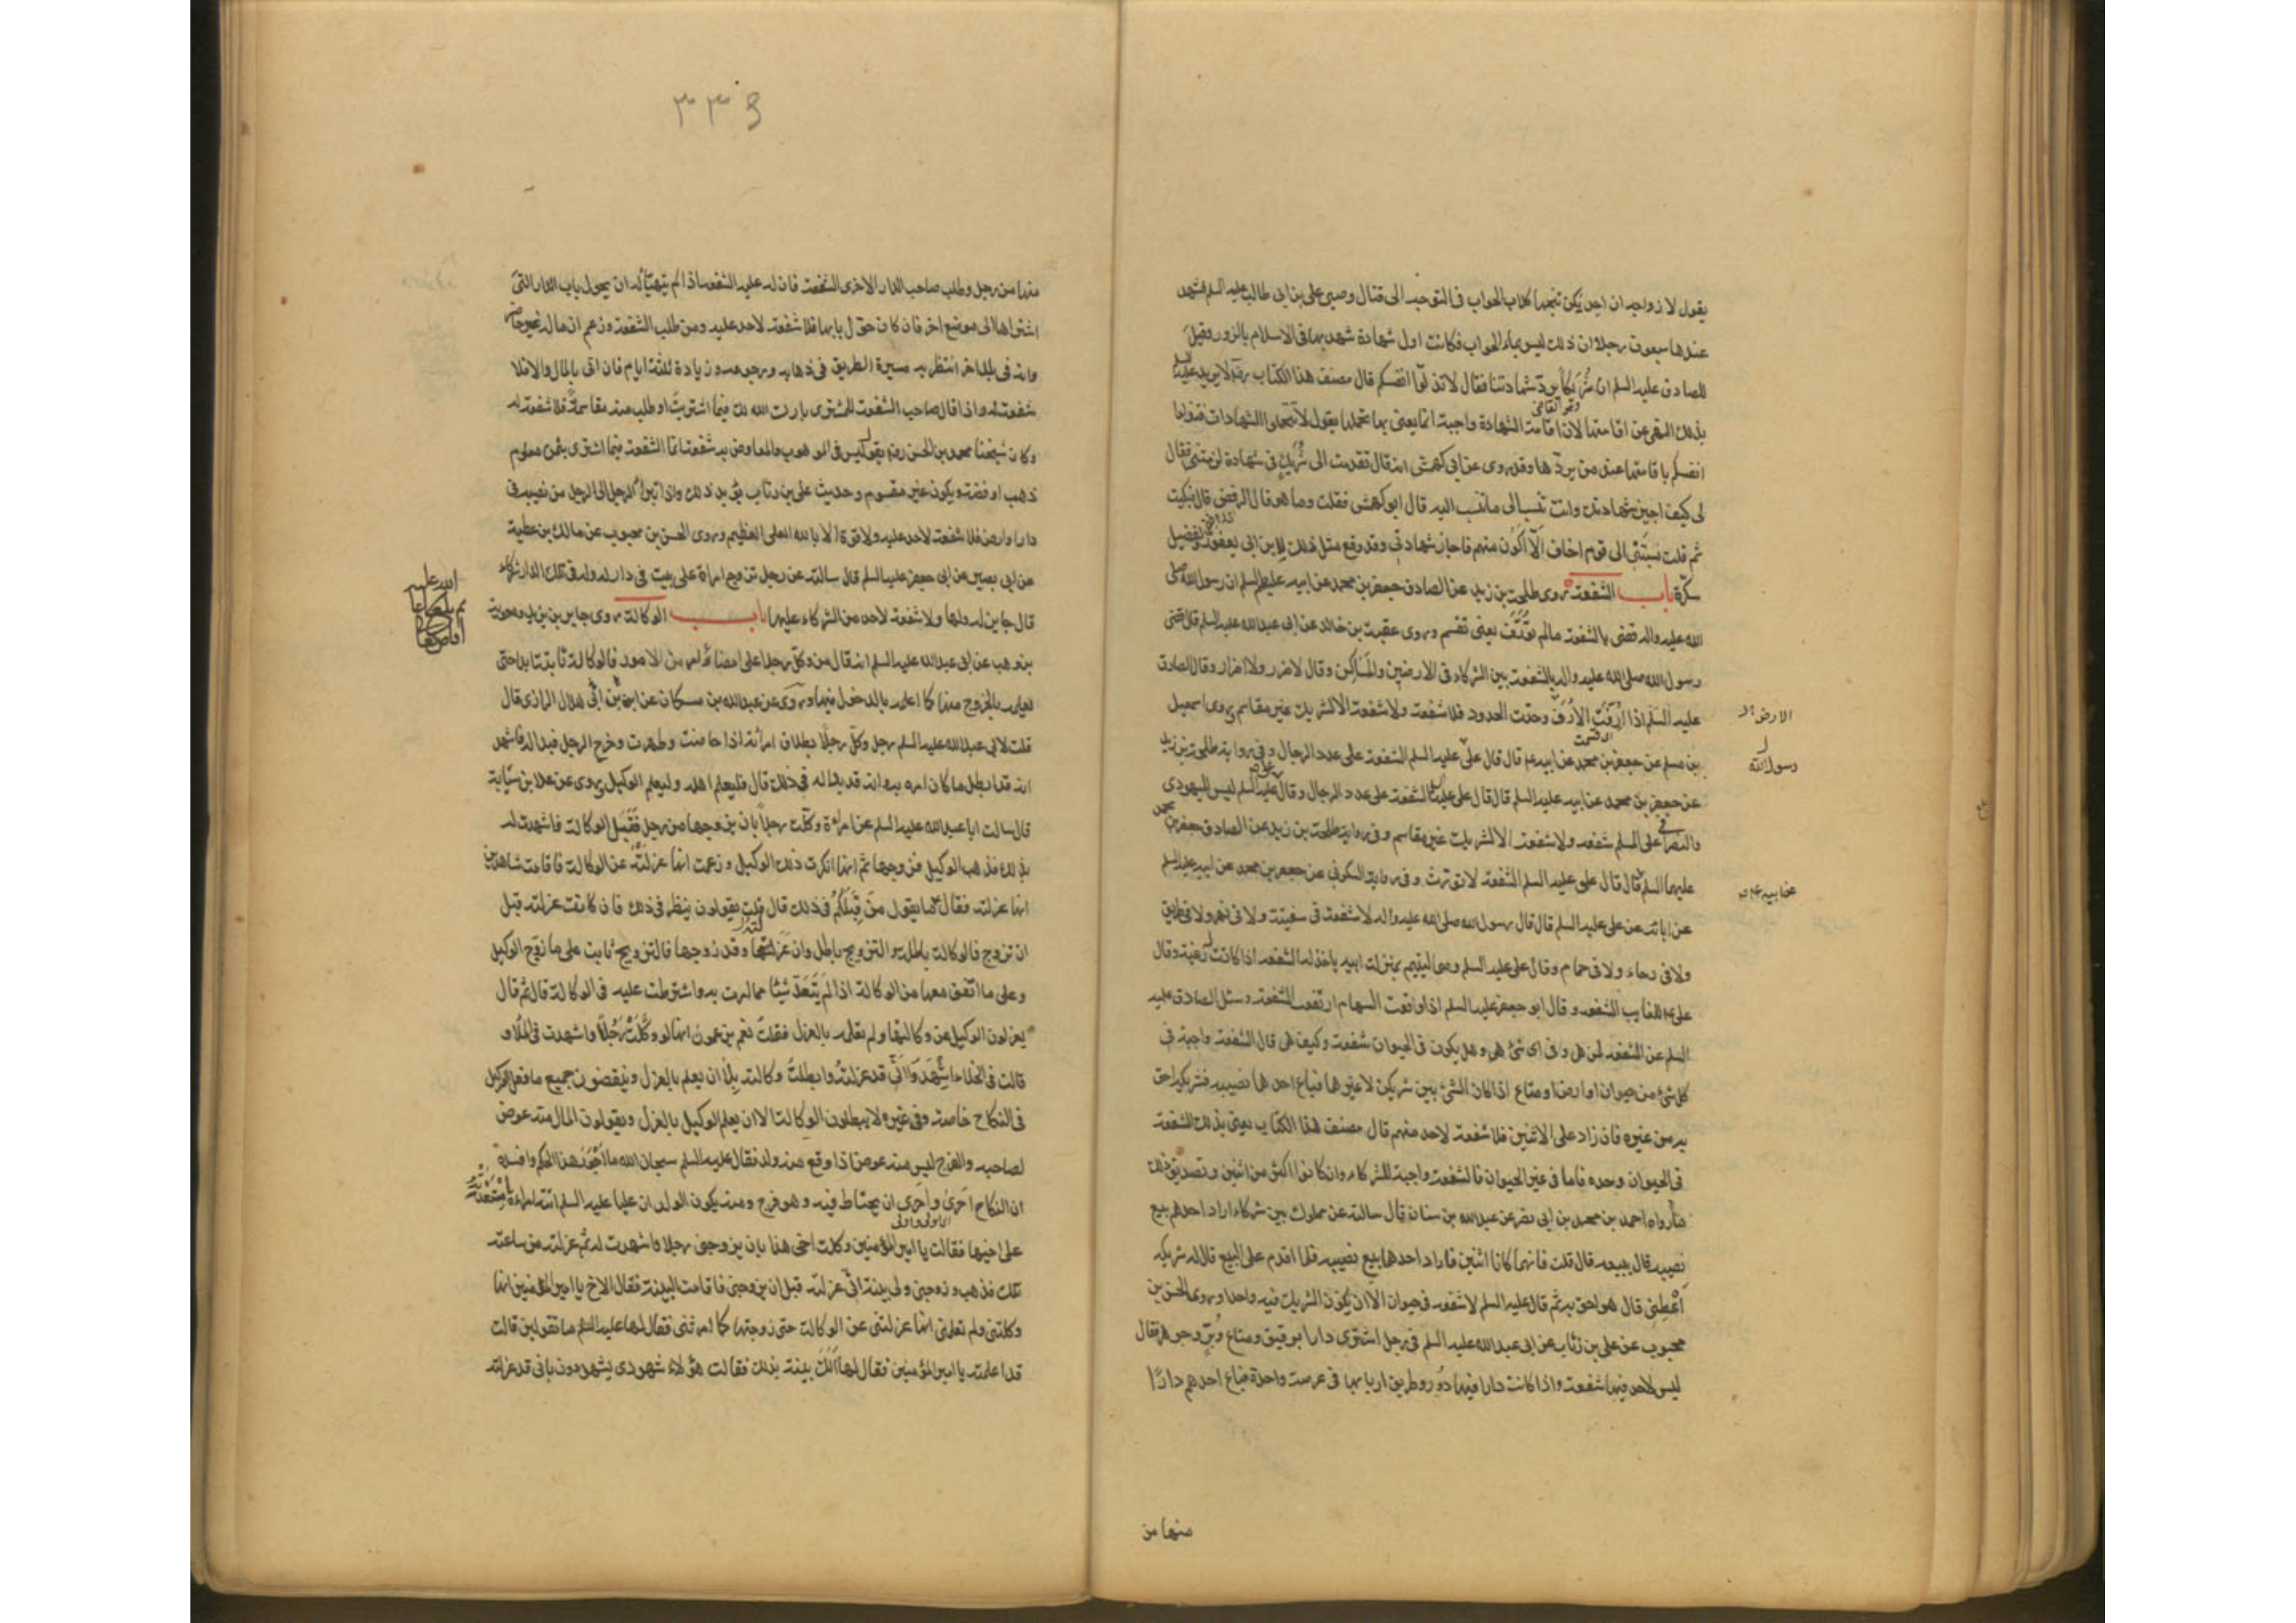 يقول لازواجه ان احديكن تنبحها كلاب الحوأب في التوجه الى قتال وصيي على بن ابى طالب عليه السلم فشهد
عندها سبعون رجلا ان ذلك ليس بماء الحواب فكانت اول شهادة شهد بها في الاسلام بالزور وقيل
للصادق عليه السلم ان شريكا يرد شهادتنا فقال لا تذلوا انفسكم قال مصنف هذا الكتاب ره لا يريد عليه السلم
بذلك النهى عن اقامتها لان اقامة الشهادة واجبة انما يعنى بها تحملها يقول لا تتحملوا الشهادات فتذلوا
انفسكم باقامتها عند من يردها وقد روى عن ابى كهمش انه قال تقدمت الى شريك في شهادة لزمتنى فقال
لى كيف اجيز شهادتك وانت تنسب الى ما تنسب اليه قال ابو كهمش فقلت وما هو قال الرفض قال فبكيت
ثم قلت نسبتنى الى قوم اخاف الا اكون منهم فاجاز شهادتى وقد وقع مثل ذلك لابن ابى يعفور ولفضيل
سكرة باب الشفعة روى طلحة بن زيد عن الصادق جعفر بن محمد عن ابيه عليهما السلم ان رسول الله صلى
الله عليه واله قضى بالشفعة ما لم تؤرف يعنى تقسم وروى عقبة بن خالد عن ابى عبدالله عليه السلم قال قضى
رسول الله صلى الله عليه واله بالشفعة بين الشركاء في الارضين والمساكن وقال لا ضرر ولا اضرار وقال الصادق
عليه السلم اذا ارفت الارف وحدت الحدود فلا شفعة ولا شفعة الا لشريك غير مقاسم روى اسمعيل
الارض
بن مسلم عن جعفر بن محمد عن ابيه ع قال قال على عليه السلم الشفعة على عدد الرجال وفى رواية طلحة بن زيد
رسول الله
عن جعفر بن محمد عن ابيه عليه السلم قال قال على عليه السلم الشفعة على عدد الرجال وقال عليه السلم ليس لليهودى
والنصرانى على المسلم شفعه ولا شفعة الا لشريك غير مقاسم وفى رواية طلحة بن زيد عن الصادق جعفر بن محمد
عليهما السلم قال قال على عليه السلم الشفعة لا تورث وفى رواية السكونى عن جعفر بن محمد عن ابيه عليه السلم
عن ابيه ع
عن ابائه عن على عليه السلم قال قال رسول الله صلى الله عليه واله لا شفعة في سفينة ولا في نهر ولا في طريق
ولا في رحاء ولا في حمام وقال على عليه السلم وصى اليتيم بمنزلة ابيه ياخذ له الشفعه اذا كانت له رغبة وقال
على ع للغايب الشفعه وقال ابو جعفر عليه السلم اذا وقعت السهام ارتفعت الشفعة وسئل الصادق عليه
السلم عن الشفعه لمن هى وفى اى شئ هى وهل يكون في الحيوان شفعة وكيف هى قال الشفعة واجبة في
كل شئ من حيوان او ارض او متاع اذا كان الشئ بين شريكين لا غيرها فباع احدهما نصيبه فشريكه احق
به من غيره فان زاد على الاثنين فلا شفعة لاحد منهم قال مصنف هذا الكتاب يعنى بذلك الشفعة
فى الحيوان وحده فاما في غير الحيوان فالشفعة واجبة للشركاء وان كانوا اكثر من اثنين وتصديق ذلك
ما رواه احمد بن محمد بن ابى نصر عن عبدالله بن سنان قال سالته عن مملوك بين شركاء اراد احدهم بيع
نصيبه قال يبيعه قال قلت فانهما كانا اثنين فاراد احدهما بيع نصيبه فلما اقدم على البيع قال له شريكه
اعطنى قال هو احق به ثم قال عليه السلم لا شفعه في حيوان الا ان يكون الشريك فيه واحدا وروى الحسن بن
محبوب عن على بن رئاب عن ابى عبدالله عليه السلم في رجل اشترى دارا برقيق ومتاع وبز وجوهر فقال
ليس لاحد فيها شفعة واذا كانت دارا فيها دور وطريق اربابها في عرصة واحدة فباع احدهم دارا
منها من
٣٣٩
منها من رجل وطلب صاحب الدار الاخرى الشفعة فان له عليه الشفعه اذا لم يتهيأ له ان يحول باب الدار التى
اشتراها الى موضع اخر فان كان حول بابها فلا شفعة لاحد عليه ومن طلب الشفعة وزعم ان ماله غير حاضر
وانه في بلد اخر انتظر به مسيرة الطريق في ذهابه ورجوعه وزيادة ثلثة ايام فان اتى بالمال والا فلا
شفعة له واذا قال صاحب الشفعة للمشترى بارك الله لك فيما اشتريت او طلب منه مقاسمة فلا شفعة له
وكان شيخنا محمد بن الحسن رضه يقول ليس في الموهوب والمعاوض به شفعة انما الشفعة فيما اشترى بثمن معلوم
ذهب او فضة ويكون غير مقسوم وحديث على بن رئاب يؤيد ذلك واذا تبرأ الرجل الى الرجل من نصيبه في
دار او ارض فلا شفعة لاحد عليه ولا قوة الا بالله العلى العظيم وروى الحسن بن محبوب عن مالك بن عطية
عن ابى بصير عن ابى جعفر عليه السلم قال سالته عن رجل تزوج امراة على بيت في دار له وله في تلك الدار شركاء
قال جايز له ولها ولا شفعة لاحد من الشركاء عليها باب الوكالة روى جابر بن يزيد ومعوية
بن وهب عن ابى عبدالله عليه السلم انه قال من وكل رجلا على امضاء امر من الامور فالوكالة ثابتة ابدا حتى
يعلمه بالخروج منها كما اعلمه بالدخول فيها وروى عن عبدالله بن مسكان عن ابى هلال الرازى قال
قلت لابى عبدالله عليه السلم رجل وكل رجلا بطلاق امراته اذا حاضت وطهرت وخرج الرجل فبدا له فاشهد
انه قد ابطل ما كان امره به وانه قد بدا له في ذلك قال فليعلم اهله وليعلم الوكيل روى عن علا بن سيابة
قال سالت ابا عبدالله عليه السلم عن امراة وكلت رجلا بان يزوجها من رجل فقبل الوكالة فاشهدت له
بذلك فذهب الوكيل فزوجها ثم انها انكرت ذلك الوكيل وزعمت انها عزلته عن الوكالة فاقامت شاهدين
انها عزلته فقال ما يقول من قبلكم في ذلك قال قلت يقولون ينظر في ذلك فان كانت عزلته قبل
ان تزوج فالوكالة باطلة والتزويج باطل وان عزلته وقد زوجها فالتزويج ثابت على ما زوج الوكيل
وعلى ما اتفق معها من الوكالة اذا لم يتعد شيئا مما امرت به واشترطت عليه في الوكالة قال ثم قال
يعزلون الوكيل عن وكالتها ولم تعلمه بالعزل فقلت نعم يزعمون انها لو وكلت رجلا واشهدت في الملاو
قالت في الخلاء اشهدوا انى قد عزلته وابطلت وكالته بلا ان يعلم بالعزل وينقضون جميع ما فعل الوكيل
فى النكاح خاصة وفى غيره لا يبطلون الوكالة الا ان يعلم الوكيل بالعزل ويقولون المال منه عوض
لصاحبه والفرج ليس منه عوض اذا وقع منه ولد فقال عليه السلم سبحان الله ما اجور هذا الحكم وافسده
ان النكاح احرى واحرى ان يحتاط فيه وهو فرج ومنه يكون الولد ان عليا عليه السلم اتته امراة مستعدية
على اخيها فقالت يا امير المؤمنين وكلت اخى هذا بان يزوجنى رجلا واشهدت له ثم عزلته من ساعته
تلك فذهب وزوجنى ولى بينة انى عزلته قبل ان يزوجنى فاقامت البينة فقال الاخ يا امير المؤمنين انها
وكلتنى ولم تعلمنى انها عزلتنى عن الوكالة حتى زوجتها كما امرتنى فقال لها عليه السلم ما تقولين قالت
قد اعلمته يا امير المؤمنين فقال لها الك بينة بذلك فقالت هؤلاء شهودى يشهدون بانى قد عزلته